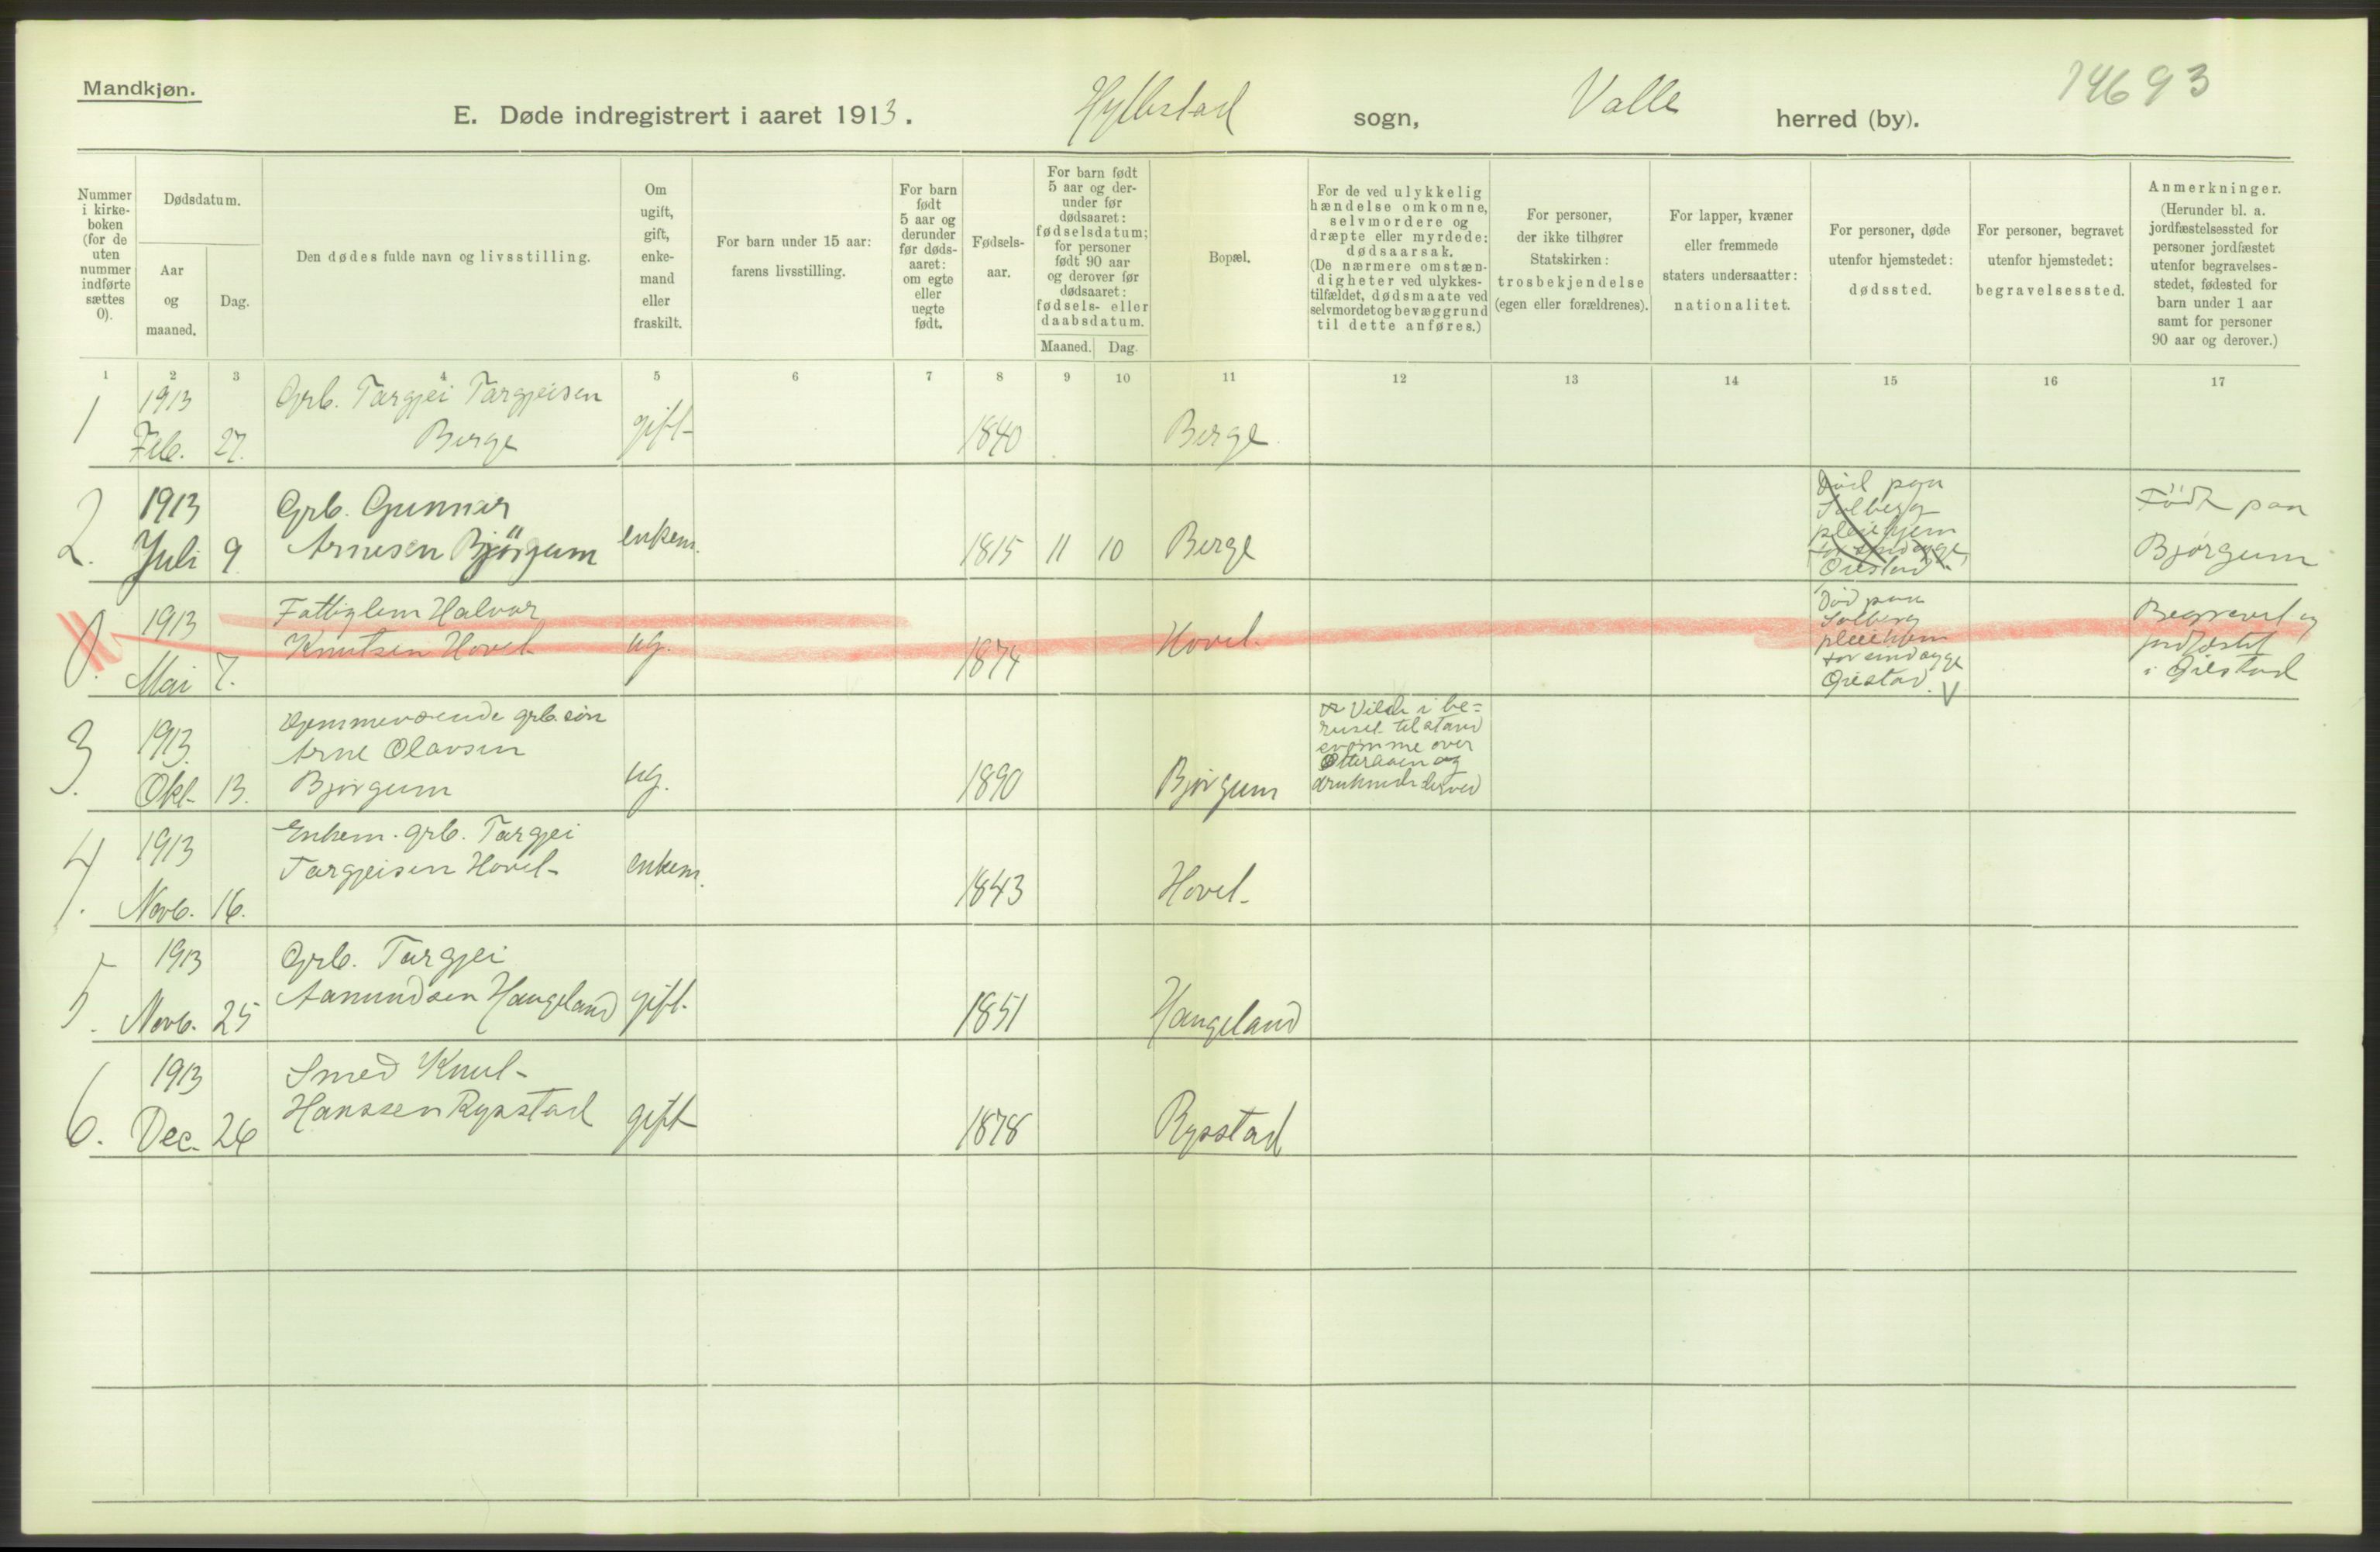 Mandkjøn.
E. Døde indregistrert i aaret 1913. Hyllestad sogn, Valle herred (by).
14693
Nummer i kirke-boken (for de uten nummer indførte sættes 0).
Dødsdatum.
Aar og maaned.
Dag.
Den dødes fulde navn og livsstilling.
Om ugift, gift, enke-mand eller fraskilt.
For barn under 15 aar: farens livsstilling.
For barn født 5 aar og derunder før døds-aaret: om egte eller uegte født.
Fødsels-aar.
For barn født 5 aar og der-under før dødsaaret: fødselsdatum; for personer født 90 aar og derover før dødsaaret: fødsels- eller daabsdatum.
Maaned. Dag.
Bopæl.
For de ved ulykkelig hændelse omkomne, selvmordere og dræpte eller myrdede: dødsaarsak. (De nærmere omstæn-digheter ved ulykkes-tilfældet, dødsmaate ved selvmordet og bevæggrund til dette anføres.)
For personer, der ikke tilhører Statskirken: trosbekjendelse (egen eller forældrenes).
For lapper, kvæner eller fremmede staters undersaatter: nationalitet.
For personer, døde utenfor hjemstedet: dødssted.
For personer, begravet utenfor hjemstedet: begravelsessted.
Anmerkninger. (Herunder bl. a. jordfæstelsessted for personer jordfæstet utenfor begravelses-stedet, fødested for barn under 1 aar samt for personer 90 aar og derover.)
1 2 3 4 5 6 7 8 9 10 11 12 13 14 15 16 17
1 1913 Feb. 27. Grb. Targjei Targjeisen Berge gift 1840 Berge
2. 1913 Juli 9 Grb. Gunnar Arnesen Bjørgum enkem. 1815 11 10 Berge
Død paa
Solberg
pleiehjem
for sindsyge
Øiestad
Født paa
Bjørgum
0. 1913 Mai 7. Fattiglem Halvor Knutsen Hovet ug. 1874 Hovet
Død paa
Solberg
pleiehjem
for sindsyge
Øiestad. V
Begravet og
jordfæstet
i Øiestad
3. 1913. Okt. 13. Hjemmeværende grb. søn Arne Olavsen Bjørgum ug. 1890 Bjørgum
Vilde i be-
ruset tilstand
svømme over
Otteraaen og
druknede derved
4. 1913 Novb. 16. Enkem. grb. Targjei Targjeisen Hovet enkem. 1843 Hovet
5. 1913 Novb. 25 Grb. Targjei Aamundsen Haugeland gift 1851 Haugeland
6. 1913 Dec. 26 Smed Knut Hanssen Rysstad gift 1878 Rysstad